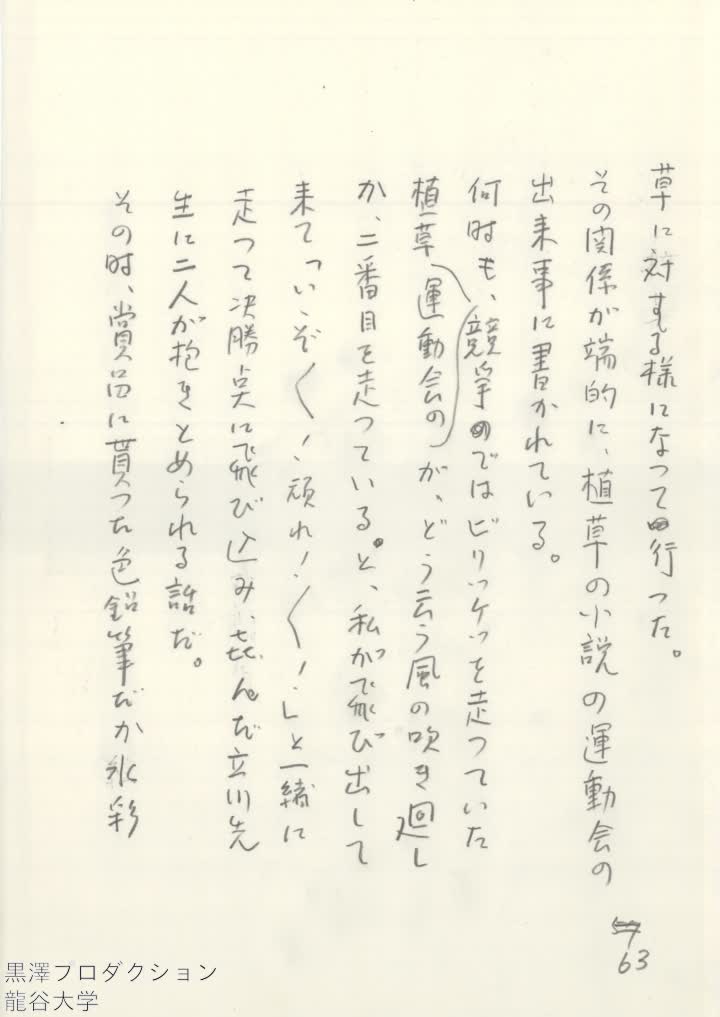 草に対する様になつて行つた。
その関係が端的に、植草の小説の運動会の
出来事に書かれている。
何時も、競争のではビリッケツを走つていた
植草、運動会のが、どう云う風の吹き廻し
か、二番目を走つている。と、私が飛び出して
来て「いゝぞ〱！頑れ！〱！」と一緒に
走つて決勝点に飛び込み、喜んだ立川先
生に二人が抱きとめられる話だ。
その時、賞品に貰つた色鉛筆だか水彩
57
63
黒澤プロダクション
龍谷大学